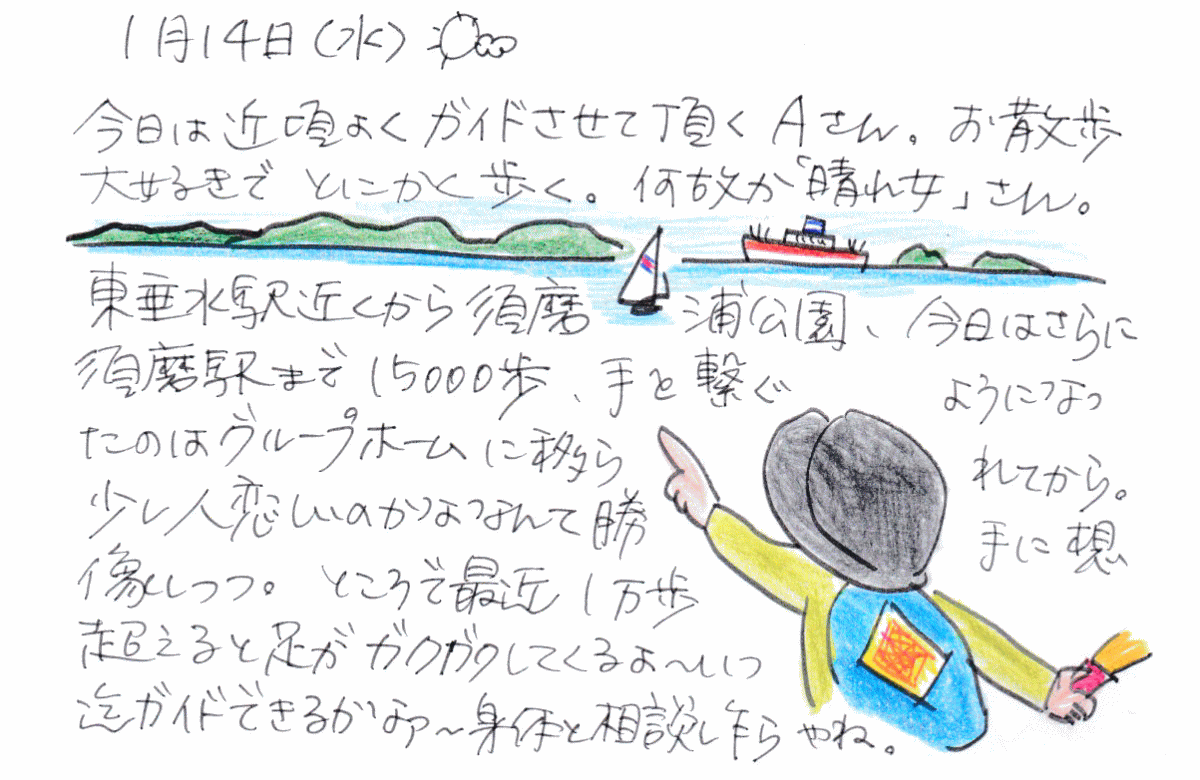 1月14日(水)
今日は近頃よくガイドさせて頂くAさん。お散歩
大好きでとにかく歩く。何故か「晴れ女」さん。
東垂水駅近くから須磨浦公園、今日はさらに
須磨駅まで15000歩、手を繋ぐようになっ
たのはグループホームに移られてから。
少し人恋しいのかななんて勝手に想
像しつつ。ところで最近1万歩
超えると足がガクガクしてくるよ〜いつ
迄ガイドできるかなァ〜身体と相談し乍らやね。